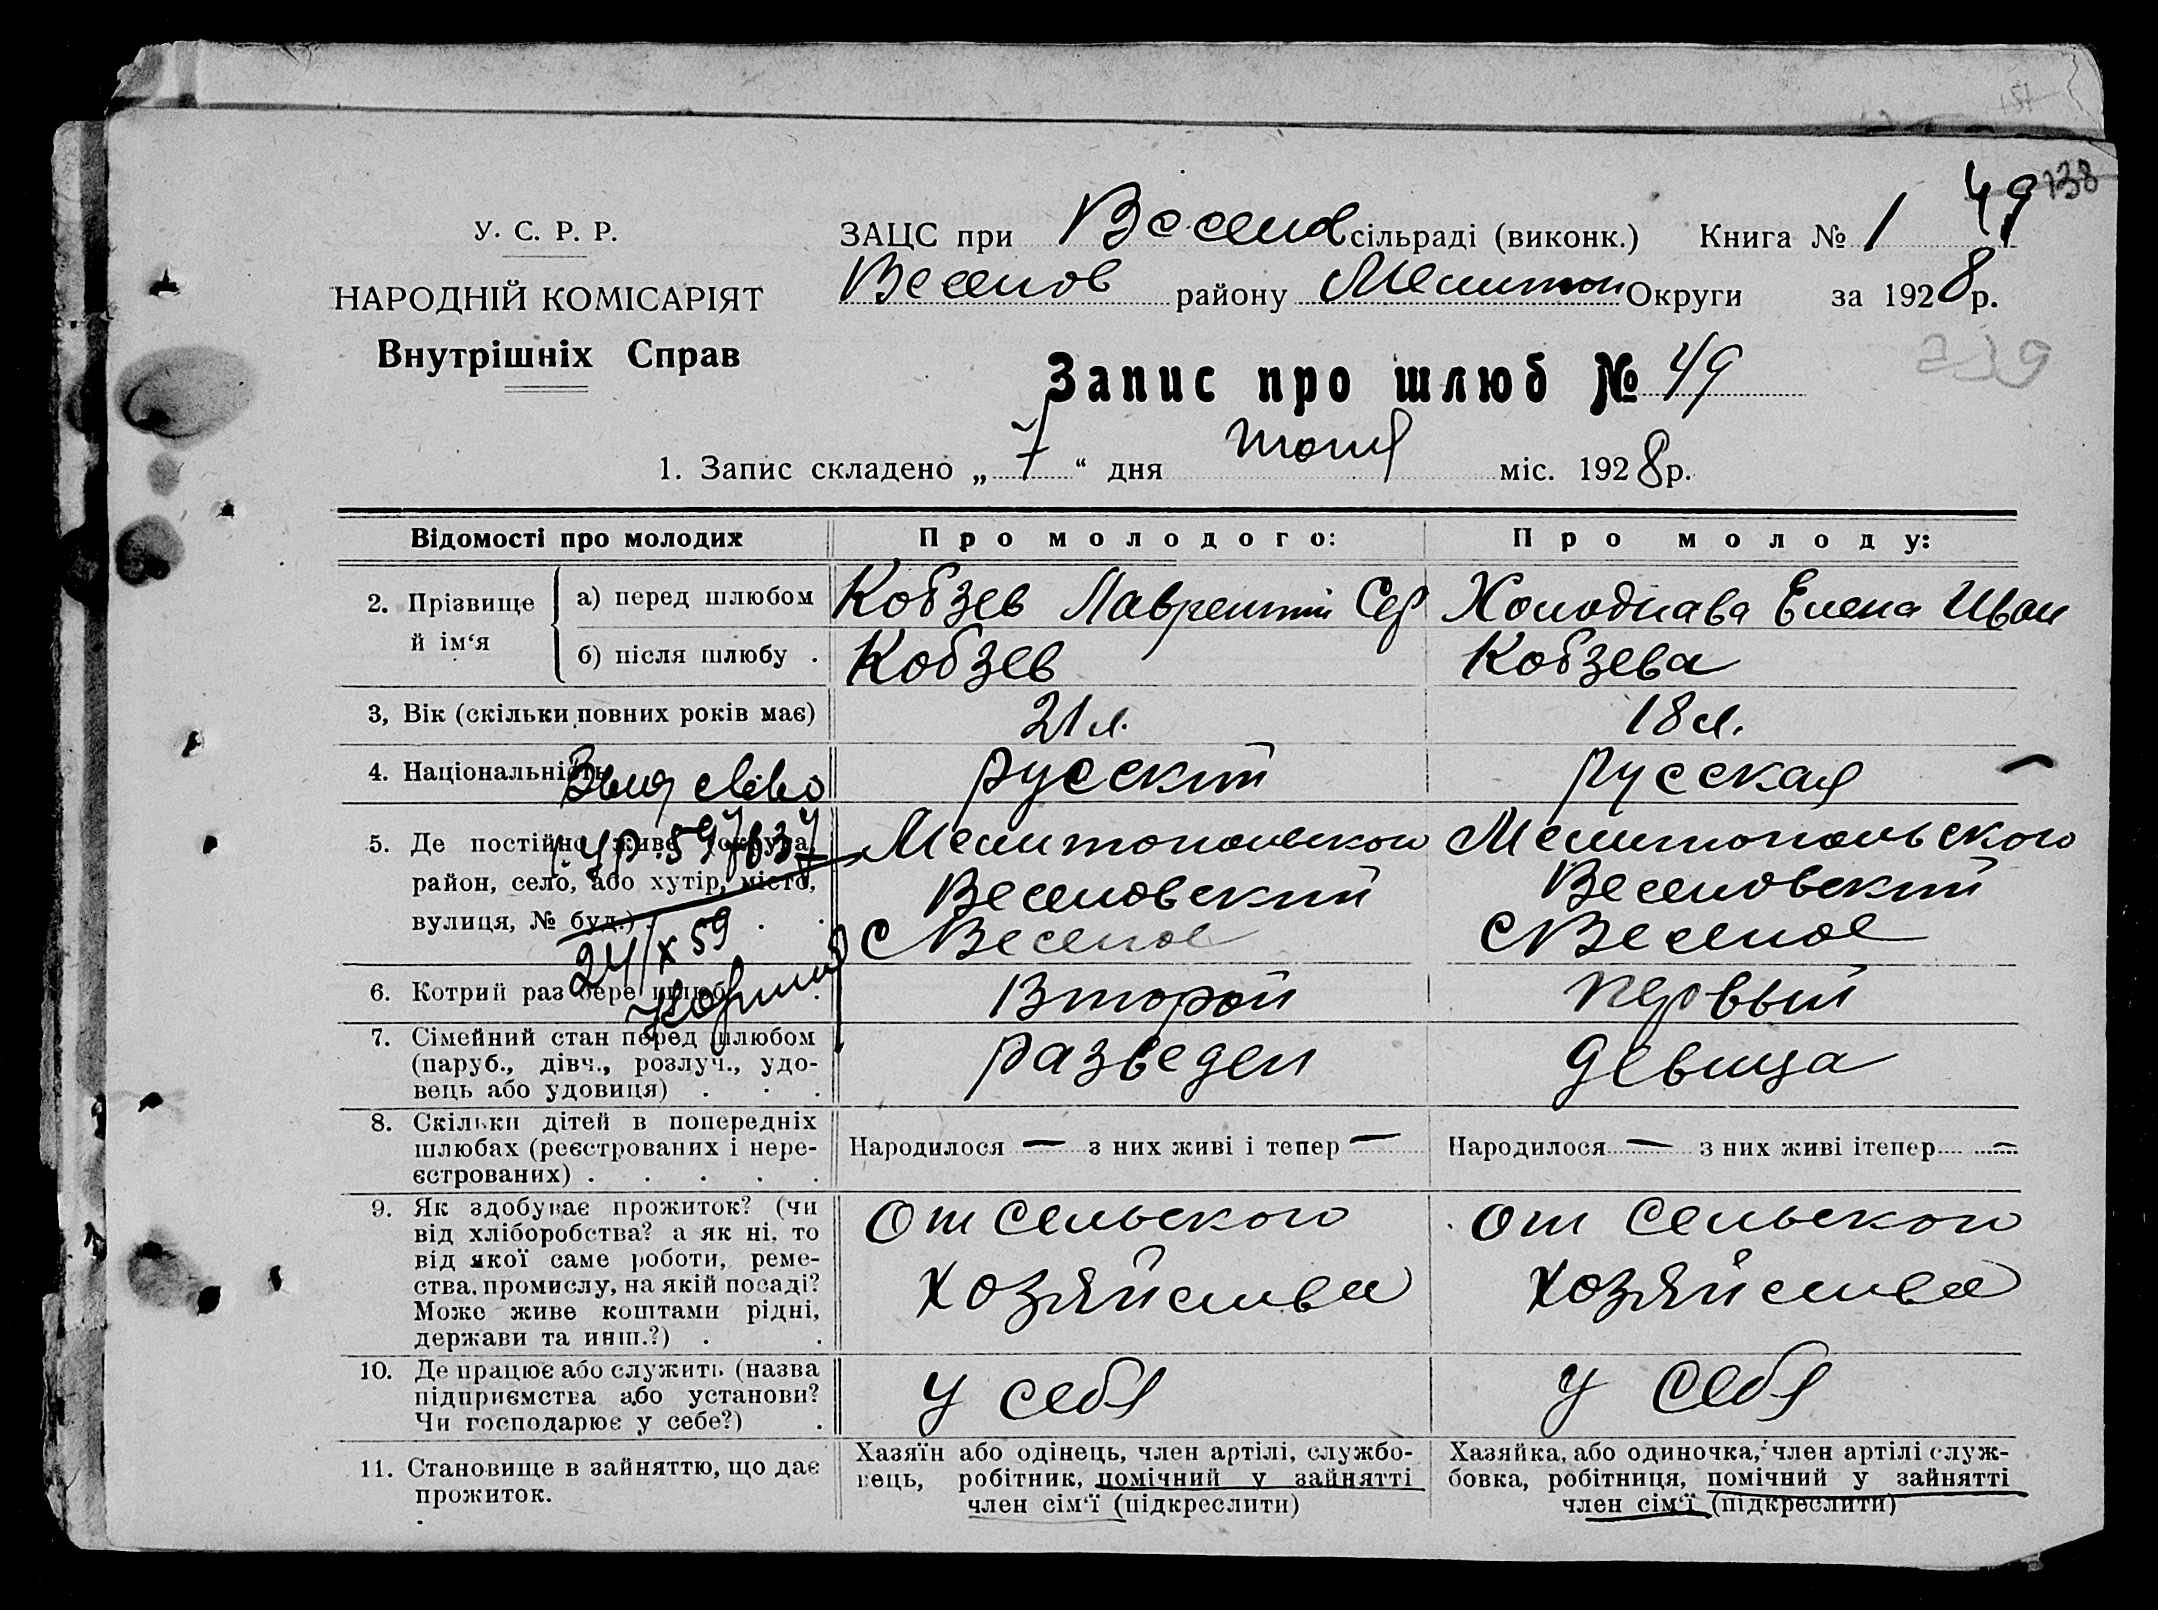 138
У. С. Р. Р.
НАРОДНІЙ КОМІСАРІЯТ
Внутрішніх Справ
ЗАЦС при Весело сільраді (виконк.) Книга № 1 49
Веселов району Мелитоп Округи за 1928 р.
Запис про шлюб № 49
239
1. Запис складено „ 7 “ дня июля міс. 1928 р.
Відомості про молодих Про молодого: Про молоду:
2. Прізвище й ім‘я
а) перед шлюбом Кобзев Лаврентий Сер Холоднава Елена Иван
б) після шлюбу . Кобзев Кобзева
3, Вік (скільки повних років має) 21 л. 18 л.
4. Національність русский русская
Выд св-во
5. Де постійно живе (округа, район, село, або хутір, місто, вулиця, № буд.) .
Мелитопольского Мелитопольского
Веселовский Веселовский
с Веселое с Веселое
24/X 59
6. Котрий раз бере шлюб Второй первый
7. Сімейний стан перед шлюбом (паруб., дівч., розлуч., удовець або удовиця) . разведен девица
8. Скільки дітей в попередніх шлюбах (реєстрованих і нереєстрованих) .
Народилося — з них живі і тепер — Народилося — з них живі ітепер —
9. Як здобуває прожиток? (чи від хліборобства? а як ні, то від якої саме роботи, ремества, промислу, на якій посаді? Може живе коштами рідні, держави та инш.?) .
От сельского От сельского
хозяйства хозяйства
10. Де працює або служить (назва підприємства або установи? Чи господарює у себе?) .
у себя у себя
11. Становище в зайняттю, що дає прожиток.
Хазяїн або одінець, член артілі, службовець, робітник, помічний у зайнятті член сім‘ї (підкреслити)
Хазяйка, або одиночка, член артілі службовка, робітниця, помічний у зайнятті член сім‘ї (підкреслити)